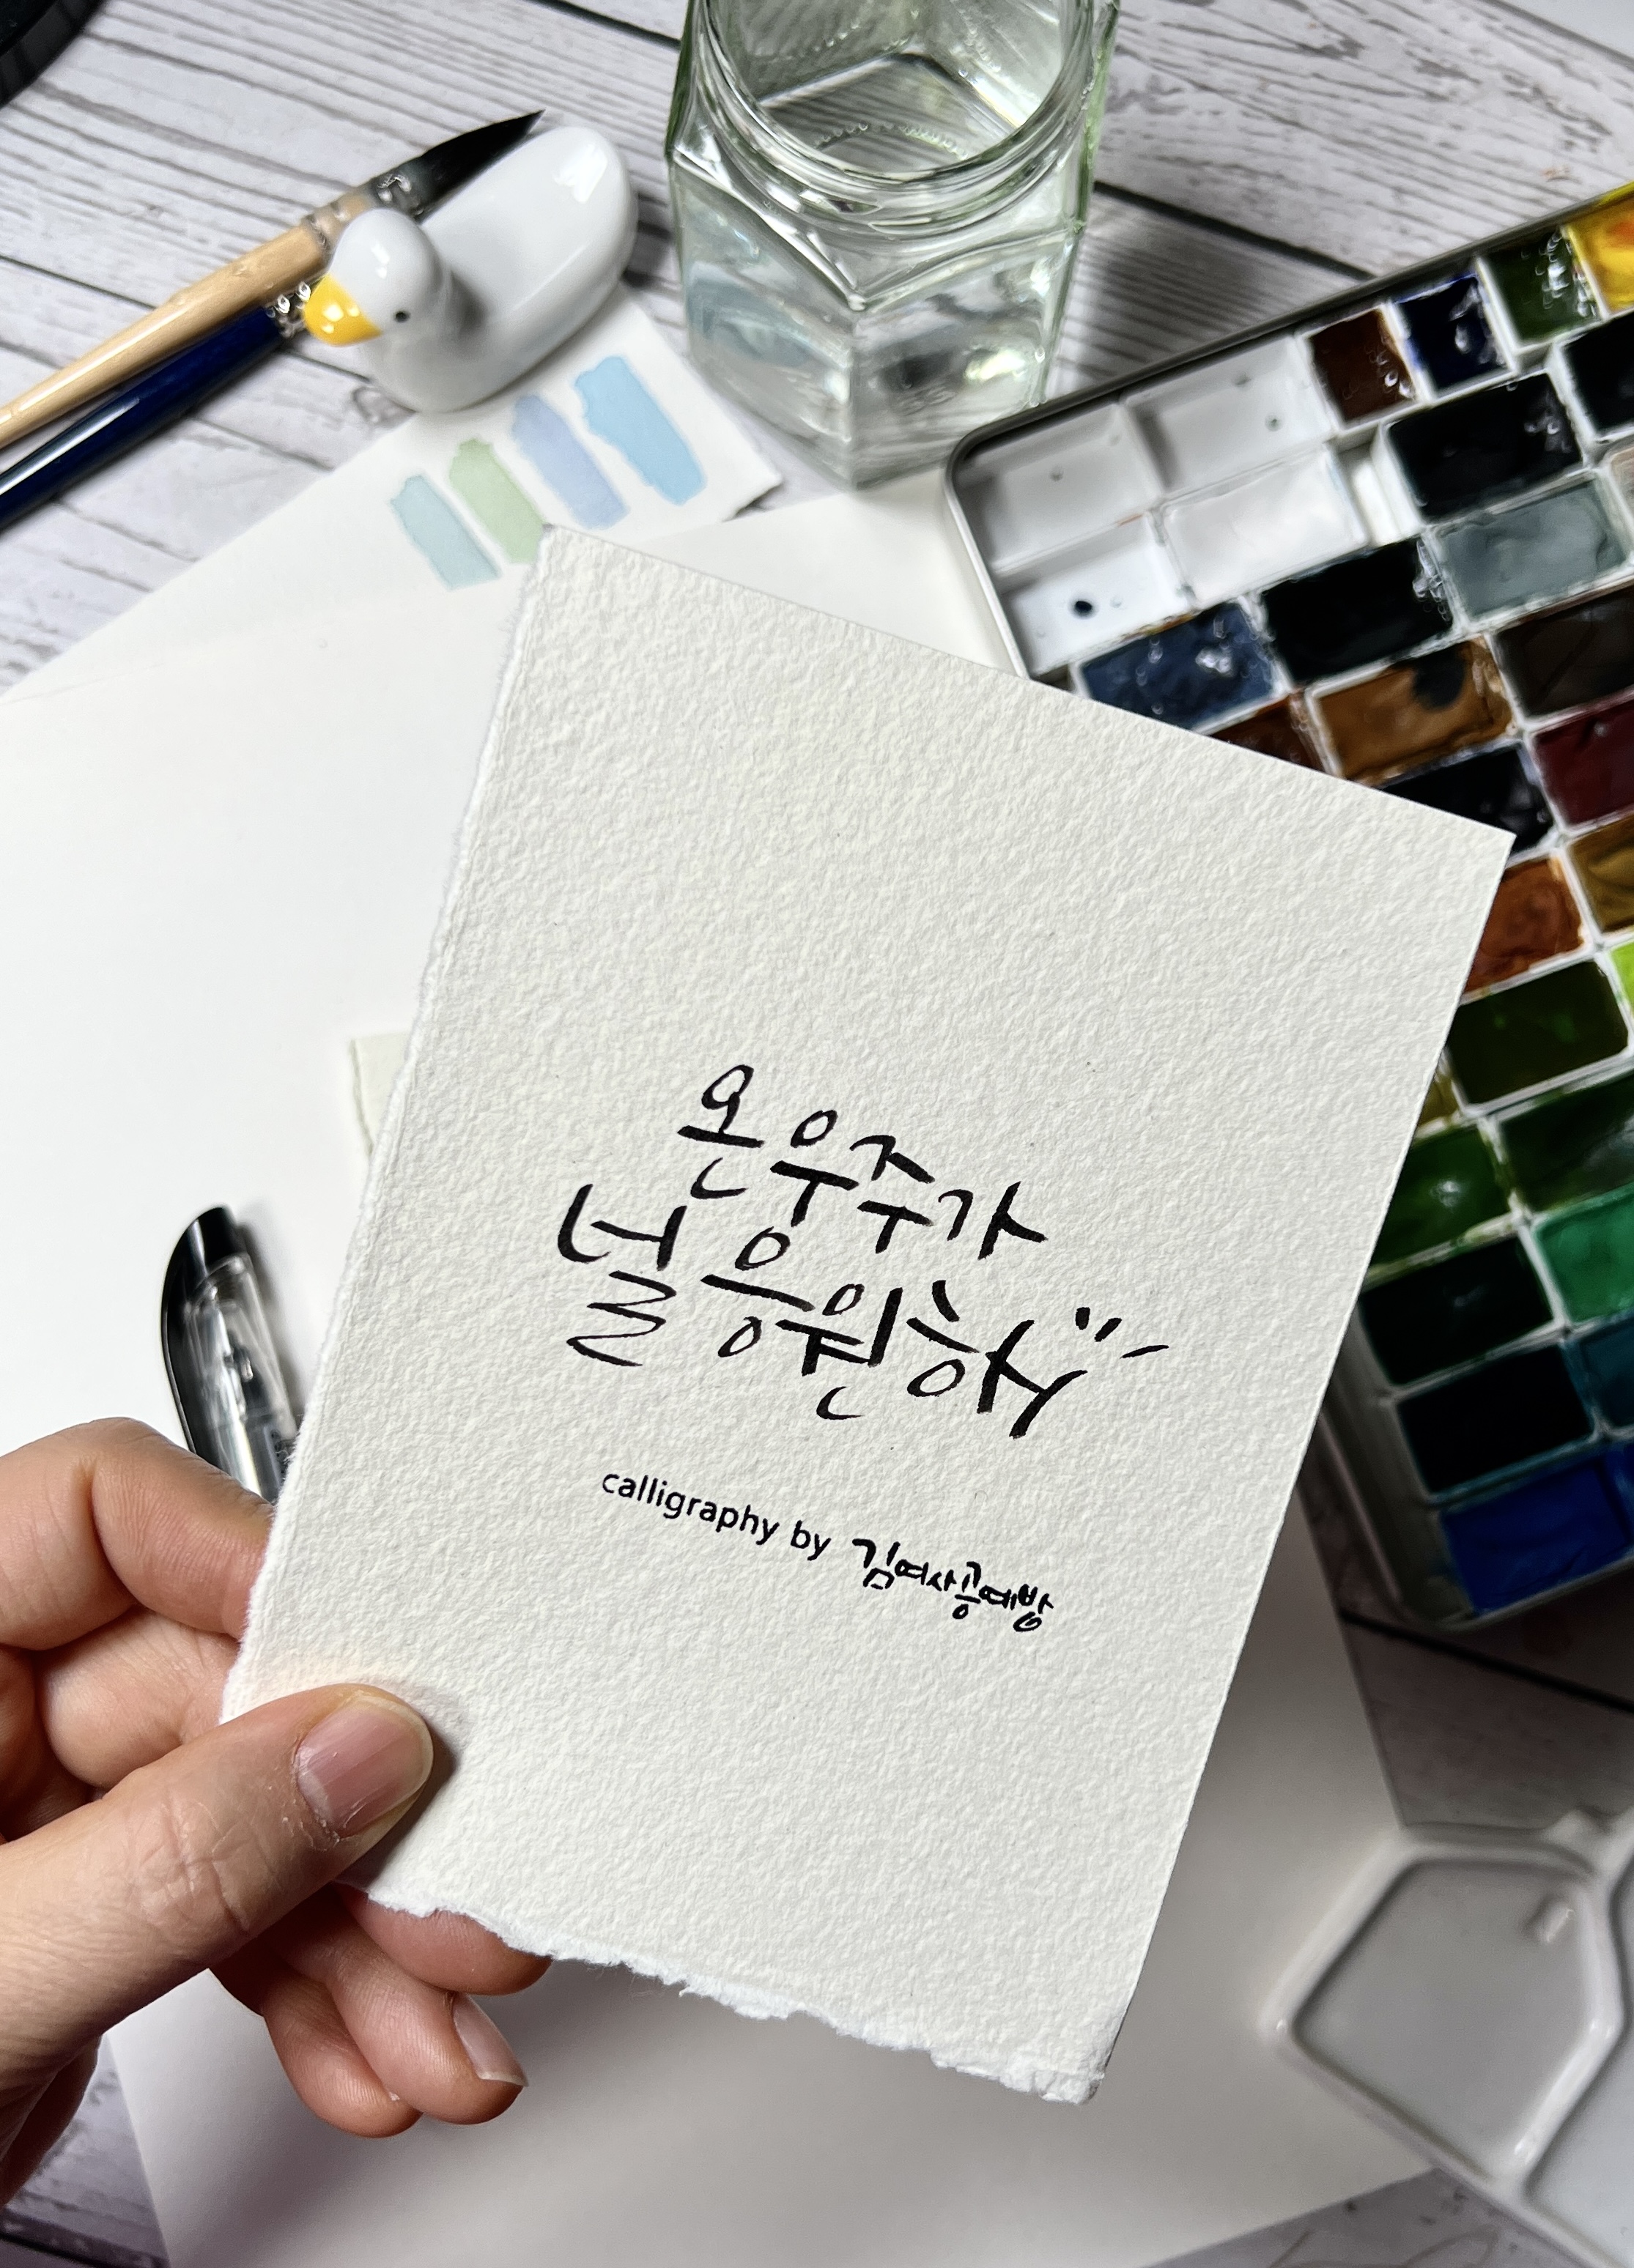 온 우주가
널 응원해
calligraphy by 김여사공예방